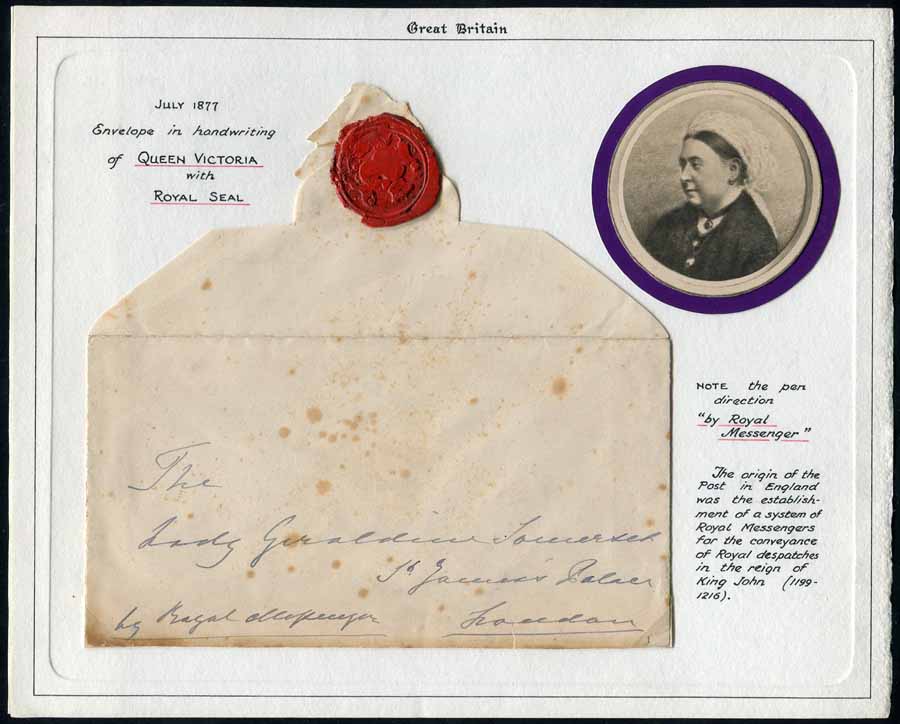 Great Britain
JULY 1877
Envelope in handwriting
of QUEEN VICTORIA
with
ROYAL SEAL
NOTE the pen
direction
"by Royal
Messenger"
The origin of the
Post in England
was the establish-
ment of a system of
Royal Messengers
for the conveyance
of Royal despatches
in the reign of
King John (1199-
1216).
The
Lady Geraldine Somerset
St James's Palace
by Royal Messenger
London